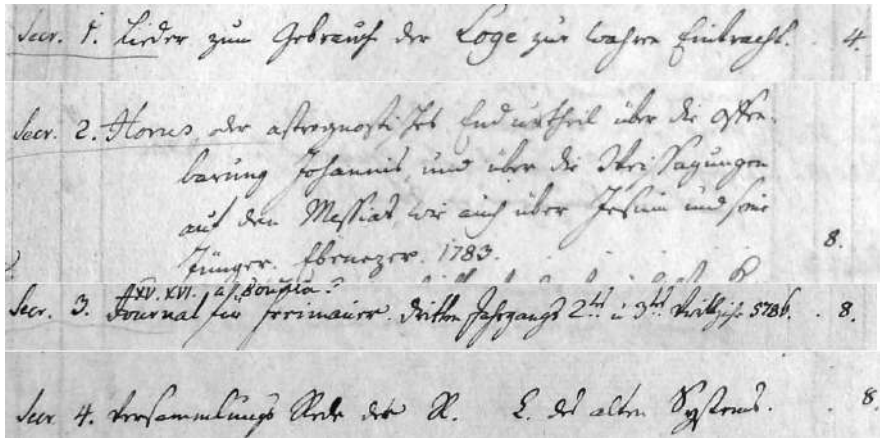 Secr. 1. Lieder zum Gebrauch der Loge zur wahren Eintracht. . 4.
Secr. 2. Horus oder astrognostisches Endurtheil über die Offen-
barung Johannis und über die Weissagungen
auf den Messias wie auch über Jesum und seine
Jünger. Ebenezer. 1783. 8.
XV. XVI.
Secr. 3. Journal für Freimaurer. Dritten Jahrgangs 2tes u 3tes Vierteljahr 5786. . 8.
Secr. 4. Versammlungs Rede der R. C. des alten Systems. . 8.